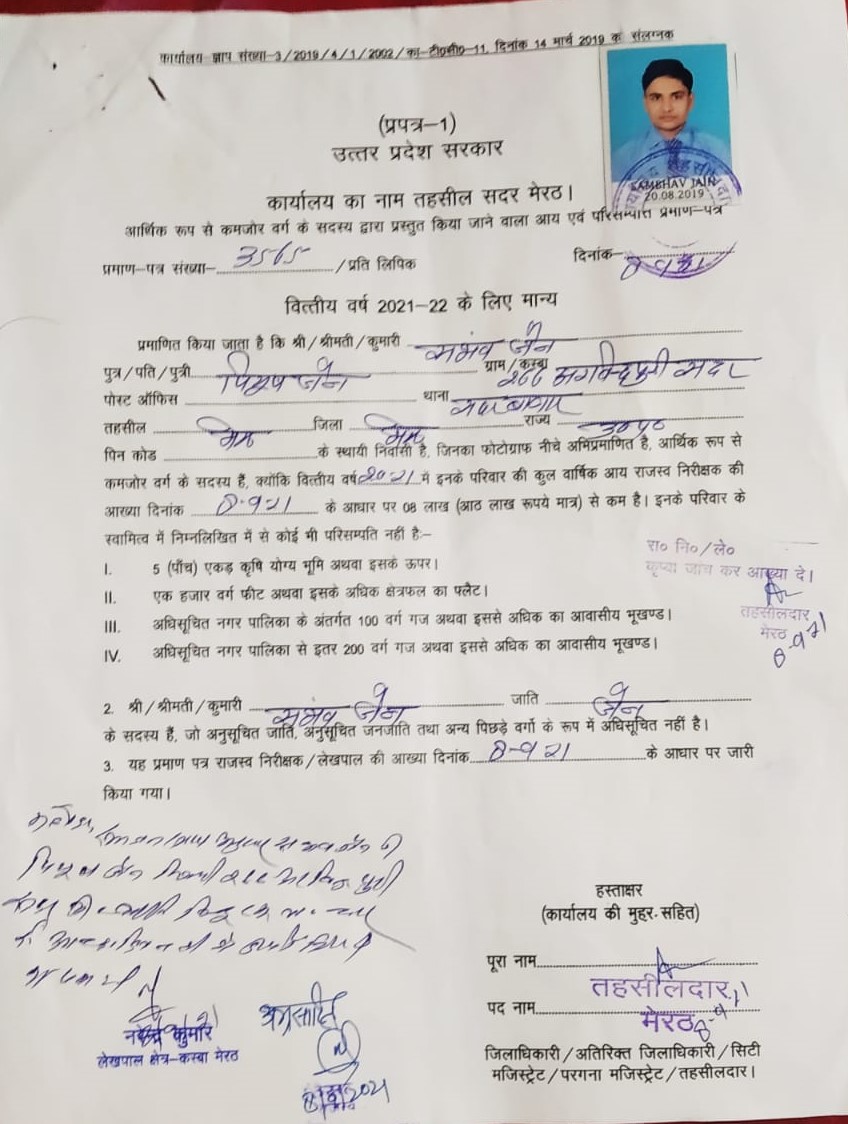 कार्यालय ज्ञाप संख्या-3/2019/4/1/2002/का-टी0सी0-11, दिनांक 14 मार्च 2019 का संलग्नक
(प्रपत्र-1)
उत्तर प्रदेश सरकार
SAMBHAV JAIN
20.08.2019
कार्यालय का नाम तहसील सदर मेरठ।
आर्थिक रूप से कमजोर वर्ग के सदस्य द्वारा प्रस्तुत किया जाने वाला आय एवं परिसम्पत्ति प्रमाण-पत्र
प्रमाण-पत्र संख्या- 3565 /प्रति लिपिक दिनांक 8-9-21
वित्तीय वर्ष 2021-22 के लिए मान्य
प्रमाणित किया जाता है कि श्री/श्रीमती/कुमारी संभव जैन
पुत्र/पति/पुत्री जैन ग्राम/कस्बा सदर
पोस्ट ऑफिस थाना सदर बाजार
तहसील मेरठ जिला मेरठ राज्य उ0प्र0
पिन कोड के स्थायी निवासी है, जिनका फोटोग्राफ नीचे अभिप्रमाणित है, आर्थिक रूप से
कमजोर वर्ग के सदस्य हैं, क्योंकि वित्तीय वर्ष 20-21 में इनके परिवार की कुल वार्षिक आय राजस्व निरीक्षक की
आख्या दिनांक 8-9-21 के आधार पर 08 लाख (आठ लाख रूपये मात्र) से कम है। इनके परिवार के
स्वामित्व में निम्नलिखित में से कोई भी परिसम्पति नहीं हैः-
I. 5 (पाँच) एकड़ कृषि योग्य भूमि अथवा इसके ऊपर।
II. एक हजार वर्ग फीट अथवा इसके अधिक क्षेत्रफल का फ्लैट।
III. अधिसूचित नगर पालिका के अंतर्गत 100 वर्ग गज अथवा इससे अधिक का आवासीय भूखण्ड।
IV. अधिसूचित नगर पालिका से इतर 200 वर्ग गज अथवा इससे अधिक का आवासीय भूखण्ड।
रा० नि०/ले०
कृप्या जांच कर आख्या दे।
तहसीलदार
मेरठ
8-9-21
2. श्री/श्रीमती/कुमारी संभव जैन जाति जैन
के सदस्य हैं, जो अनुसूचित जाति, अनुसूचित जनजाति तथा अन्य पिछड़े वर्गो के रूप में अधिसूचित नहीं है।
3. यह प्रमाण पत्र राजस्व निरीक्षक/लेखपाल की आख्या दिनांक 8-9-21 के आधार पर जारी
किया गया।
हस्ताक्षर
(कार्यालय की मुहर सहित)
पूरा नाम
तहसीलदार
पद नाम
मेरठ 8-9-21
जिलाधिकारी/अतिरिक्त जिलाधिकारी/सिटी
मजिस्ट्रेट/परगना मजिस्ट्रेट/तहसीलदार।
कुमार
लेखपाल क्षेत्र-कस्बा मेरठ